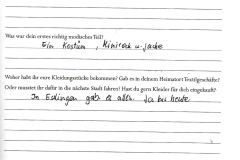 Was war dein erstes richtig modisches Teil?
Ein Kostüm, Minirock u. Jacke
Woher habt ihr eure Kleidungsstücke bekommen? Gab es in deinem Heimatort Textilgeschäfte?
Oder musstet ihr dafür in die nächste Stadt fahren? Hast du gern Kleider für dich eingekauft?
In Esslingen gab es alles. Ja bis heute